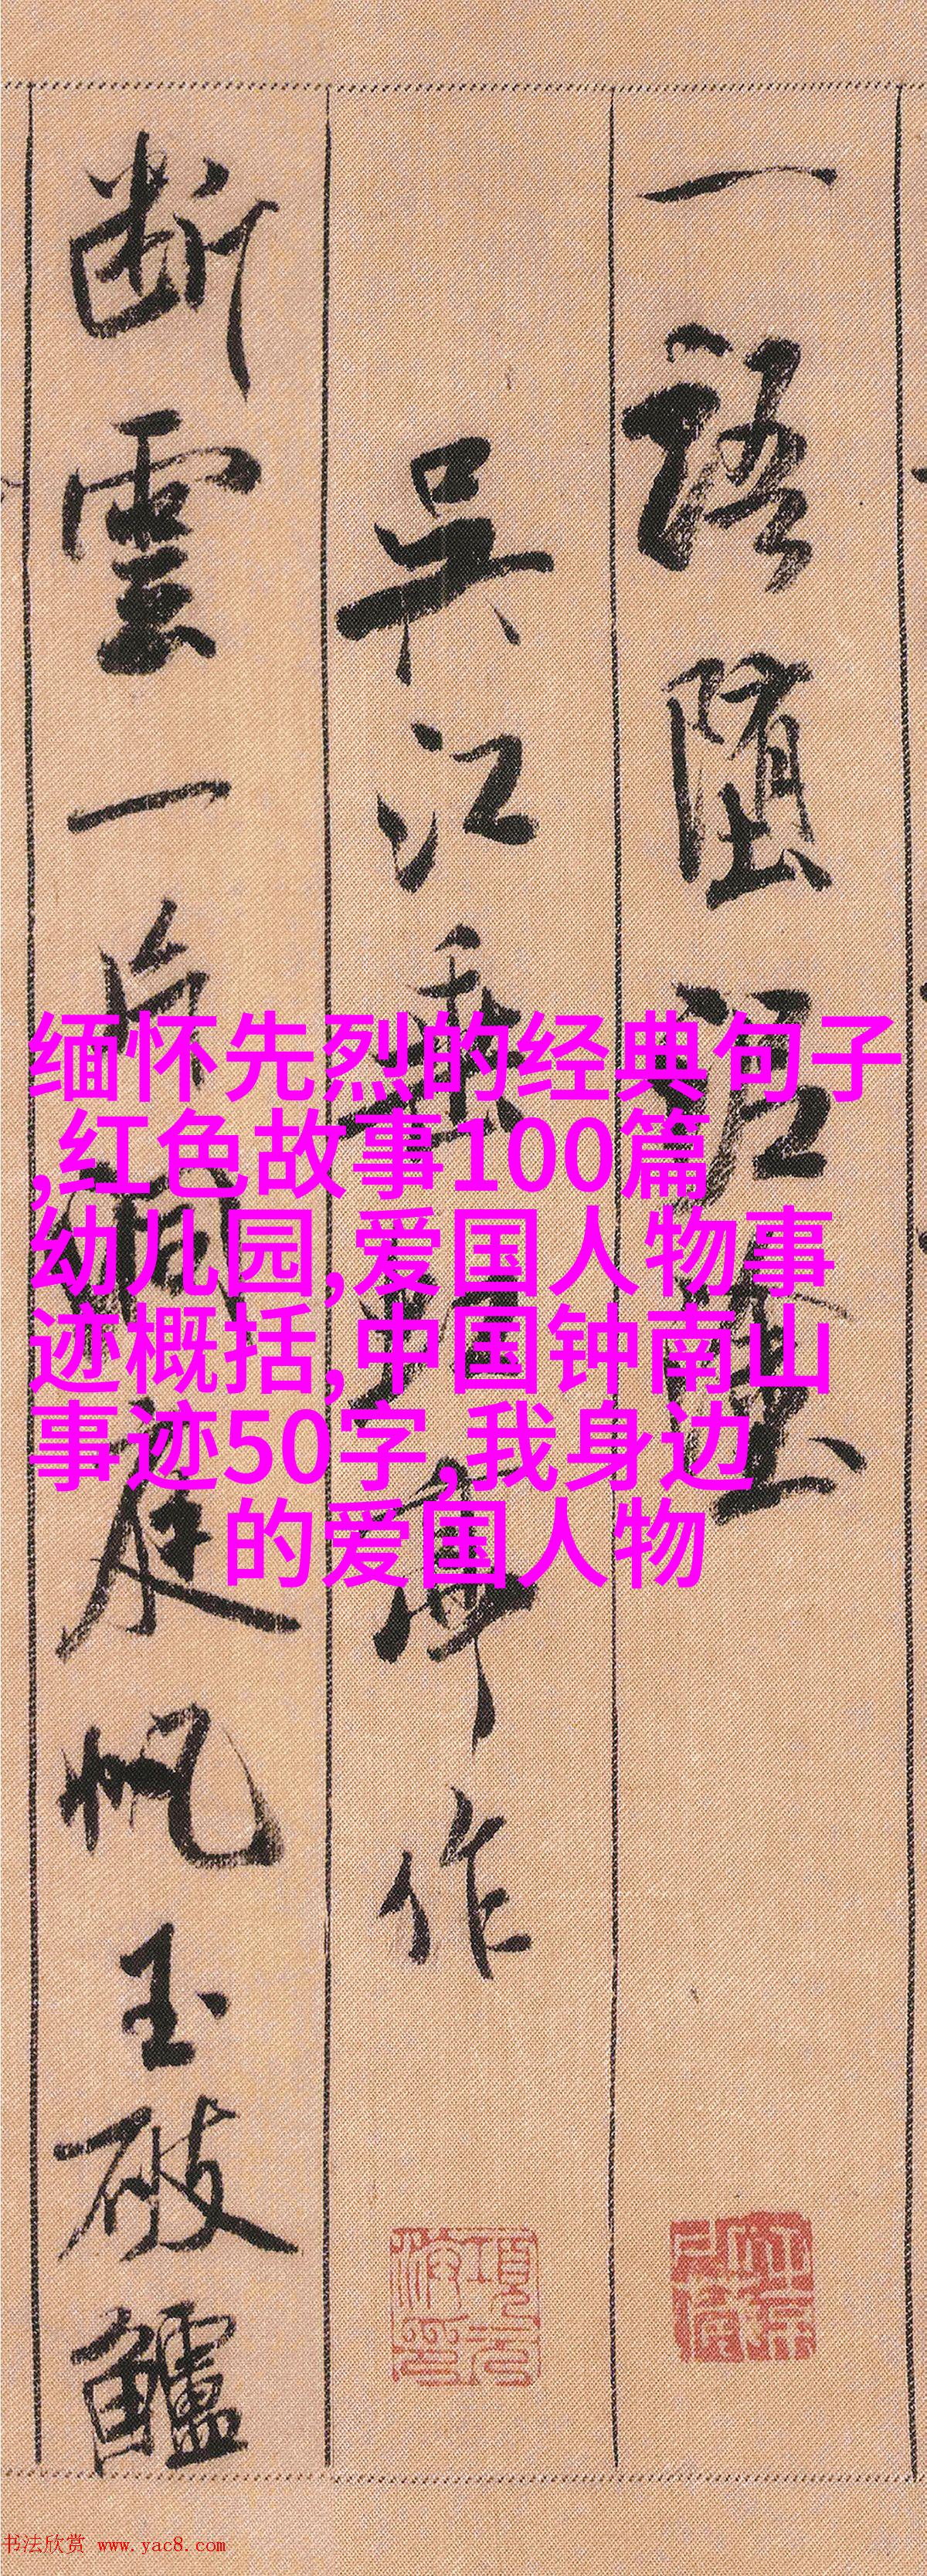 一語墮泥塗
吳江垂虹亭作
断雲一片洞庭帆玉破鱸
缅怀先烈的经典句子
,红色故事100篇
幼儿园,爱国人物事
迹概括,中国钟南山
事迹50字,我身边
的爱国人物
书法欣赏 www.yac8.com